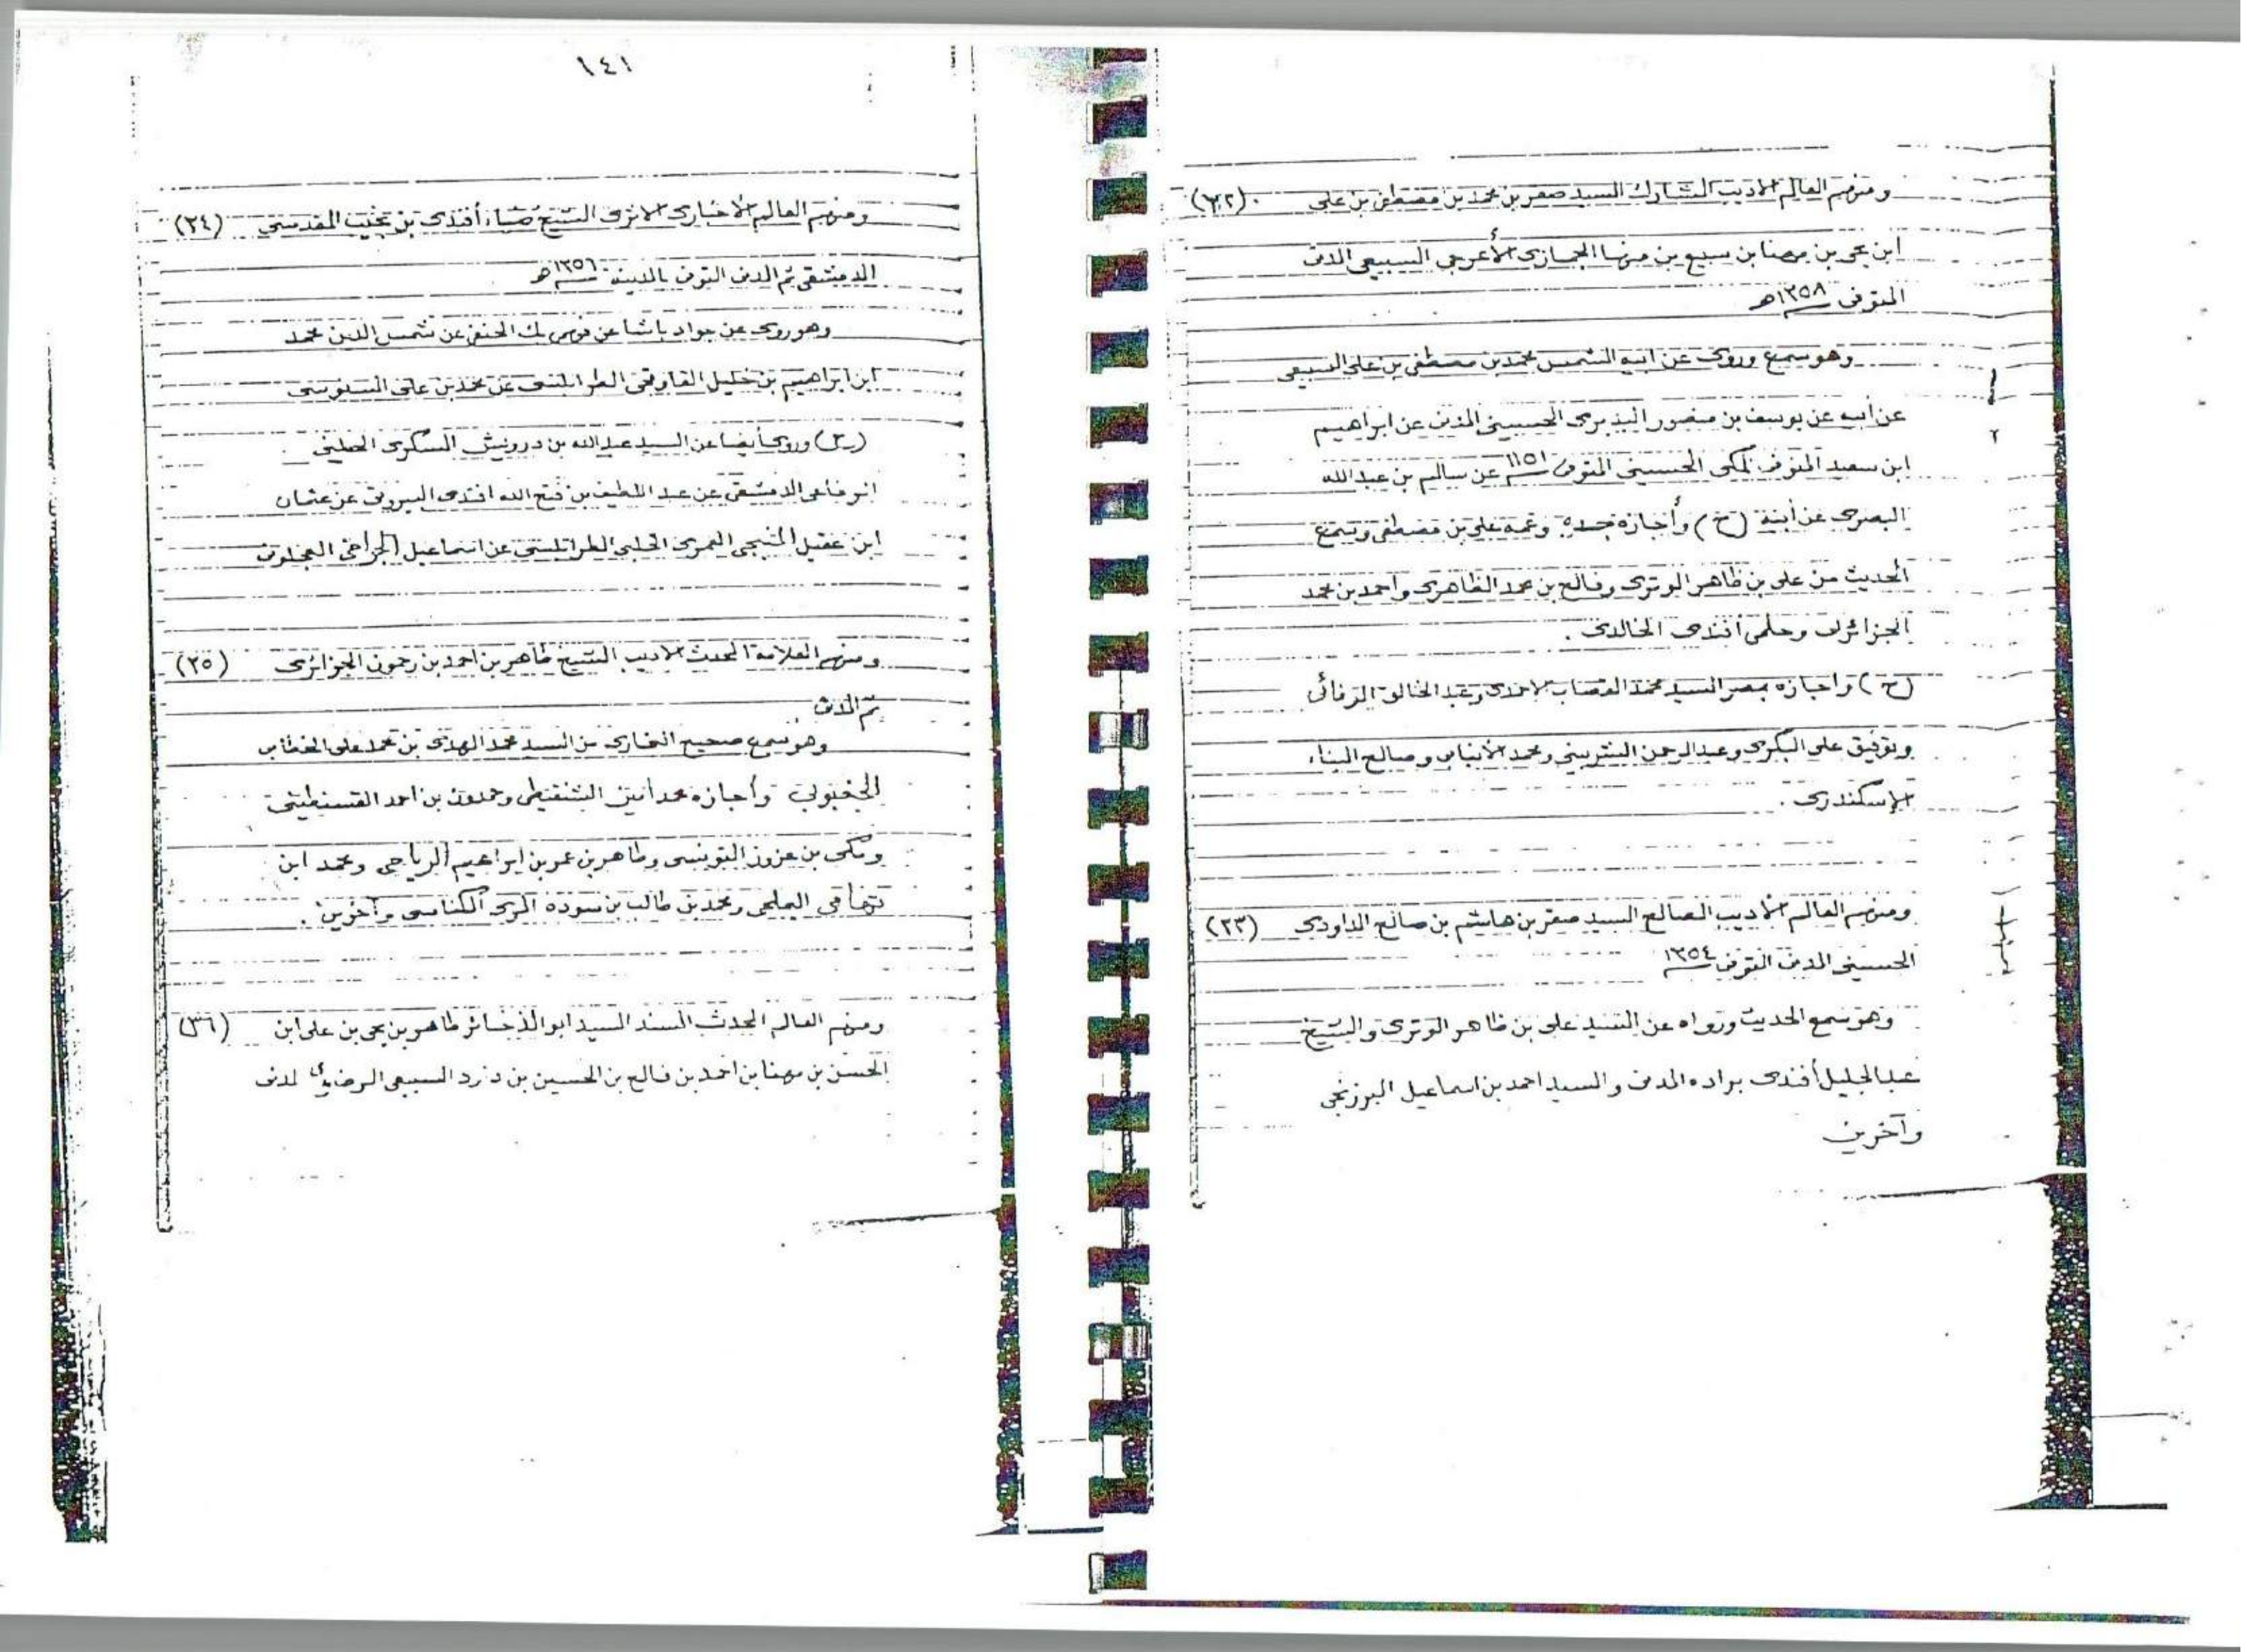 ومنهم العالم الأديب المشارك السيد صقر بن محمد بن مصطفى بن علي (٢٢)
ابن يحي بن مهنا بن سبيع بن مهنا الحجازي الأعرجي السبيعي المدني
المتوفى ١٣٥٨هـ
وهو سمع وروى عن ابيه الشمس محمد بن مصطفى بن علي السبيعي
١
عن أبيه عن يوسف بن منصور البديري الحسيني المدني عن ابراهيم
٢
ابن سعيد المنوفي المكي الحسيني المتوفى ١١٥١ عن سالم بن عبد الله
البصري عن أبيه (ح) وأجازه جده وعمه علي بن مصطفى وسمع
الحديث من علي بن ظاهر الوتري وفالح بن محمد الظاهري واحمد بن محمد
الجزائرلي وحلمي أفندي الخالدي .
(ح) واجازه بمصر السيد محمد القصاب الاحمدي وعبد الخالق الرفائي
وتوفيق علي البكري وعبد الرحمن الشربيني ومحمد الأنبابي وصالح البناء
الإسكندري .
ومنهم العالم الأديب الصالح السيد صقر بن هاشم بن صالح الداودي (٢٣)
الحسيني المدني المتوفى ١٣٥٤
وهو سمع الحديث ورواه عن السيد علي بن ظاهر الوتري والشيخ
عبد الجليل أفندي براده المدني والسيد احمد بن اسماعيل البرزنجي
وآخرين
١٤١
ومنهم العالم الأخباري الأثري الشيخ ضياء أفندي بن نجيب المقدسي (٢٤)
الدمشقي ثم المدني المتوفى بالمدينة ١٣٥٦هـ
وهو روى عن جواد باشا عن موسى بك الحنفي عن شمس الدين محمد
ابن ابراهيم بن خليل القاوقجي الطرابلسي عن محمد بن علي السنوسي
(ح) وروى أيضا عن السيد عبد الله بن درويش السكري الحنفي
الرفاعي الدمشقي عن عبد اللطيف بن فتح الله افندي البيروتي عن عثمان
ابن عقيل المنبجي العمري الحلبي الطرابلسي عن اسماعيل الجراحي العجلوني
ومنهم العلامة المحدث الأديب الشيخ طاهر بن احمد بن رحمون الجزائري (٢٥)
ثم المدني
وهو سمع صحيح البخاري من السيد محمد المهدي بن محمد علي الخطابي
الجغبوبي وأجازه محمد أمين الشنقيطي وحمدون بن احمد القسنطيني
ومكي بن عزوز التونسي وطاهر بن عمر بن ابراهيم الرياحي ومحمد ابن
تهامي العلمي ومحمد بن طالب بن سودة المري المكناسي وآخرين .
ومنهم العالم المحدث المسند السيد ابو الذخائر طاهر بن يحي بن علي ابن (٣٦)
الحسن بن مهنا بن احمد بن فالح بن الحسين بن داود السبيعي المدني